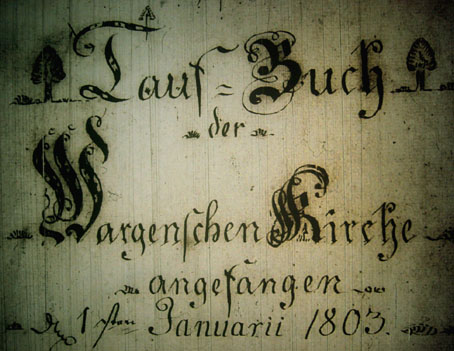 Tauf=Buch
der
Wargenschen Kirche
angefangen
den 1sten Januarii 1803.